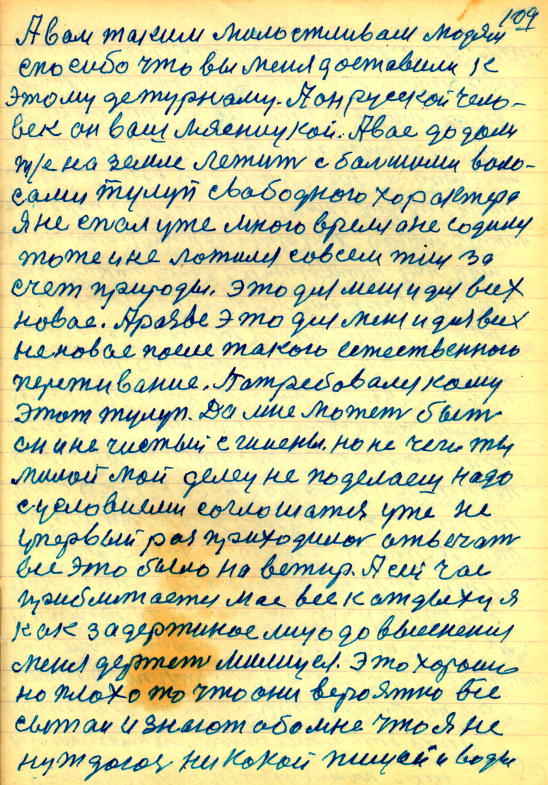 109
А вам таким милостливам людям
спосибо что вы меня доставили к
этому дежурному. А он русской чело-
век он ваш мясницкой. А вас дадоли
же на земле лежит с большими воло-
сами тулуп свабодного характера
Я не спал уже много время а не садился
тоже и не ложился совсем жил за
счет природы. Это для меня и для всех
новае. А разве это для меня и для всех
не новае после такого естественного
переживание. Патребовался кому
этот тулуп. Да мне может быть
он и не чистый с гигены. но не чего ты
милой мой делец не поделаеш надо
с условиеми соглошатся уже не
у первый раз приходилось отвечать
все это было на ветир. А сей час
приближается мае все к отдыху я
как задержиное лицо до выеснения
меня держет милицыя. Это хорошо
но плохо то что они вероятно все
сытаи и знают обо мне что я не
нуждаюся ни какой пищай и воды